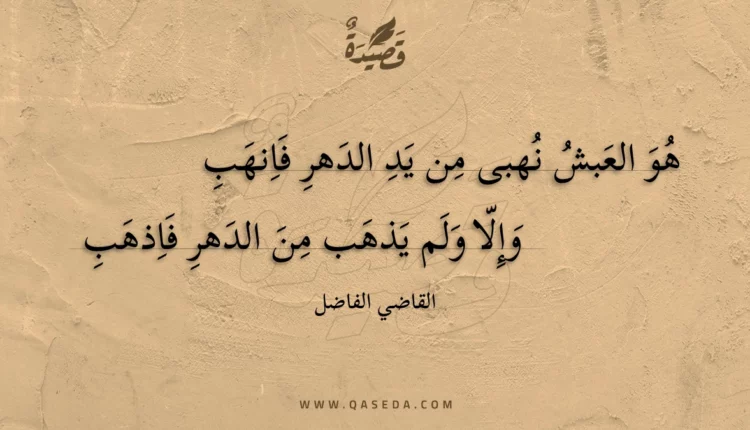 قَصِيدَةٌ
هُوَ العَبشُ نُهبى مِن يَدِ الدَهرِ فَاِنهَبِ
وَإِلّا وَلَم يَذهَب مِنَ الدَهرِ فَاِذهَبِ
القاضي الفاضل
WWW.QASEDA.COM